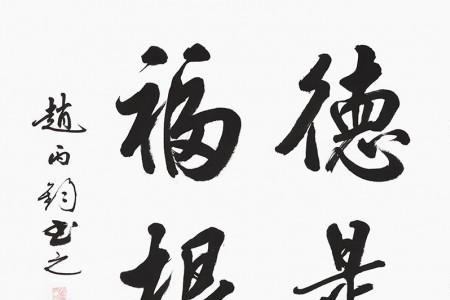 德是
福根
趙丙鈞書之